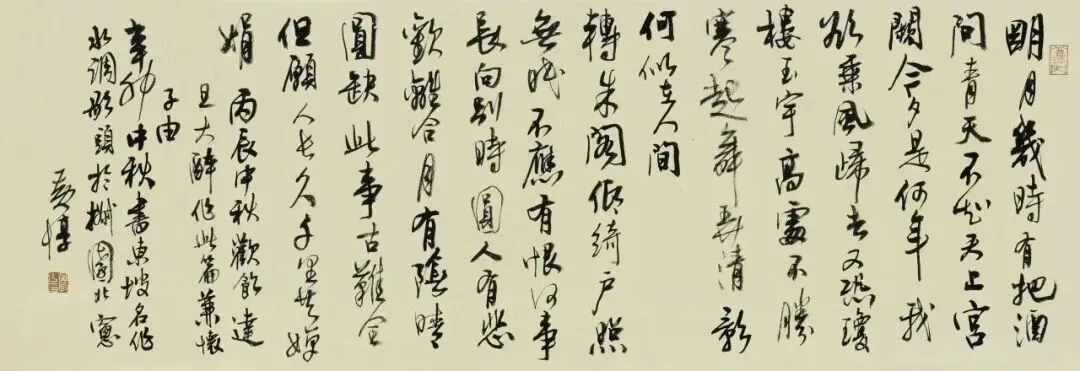 明月幾時有把酒
問青天不知天上宮
闕今夕是何年我
欲乘風歸去又恐瓊
樓玉宇高處不勝
寒起舞弄清影
何似在人間
轉朱閣低綺戶照
無眠不應有恨何事
長向別時圓人有悲
歡離合月有陰晴
圓缺此事古難全
但願人長久千里共嬋
娟 丙辰中秋歡飲達
旦大醉作此篇兼懷
子由
辛卯中秋書東坡名作
水調歌頭於槭園北窗